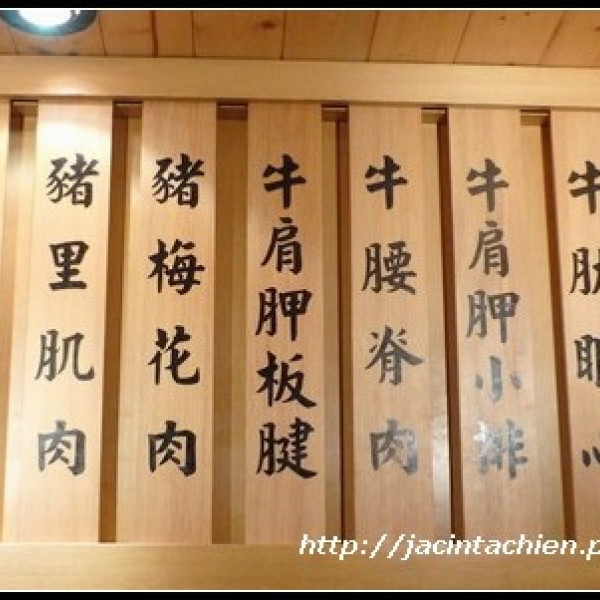 豬里肌肉
豬梅花肉
牛肩胛板腱
牛腰脊肉
牛肩胛小排
牛肋眼心
http://jacintachien.p